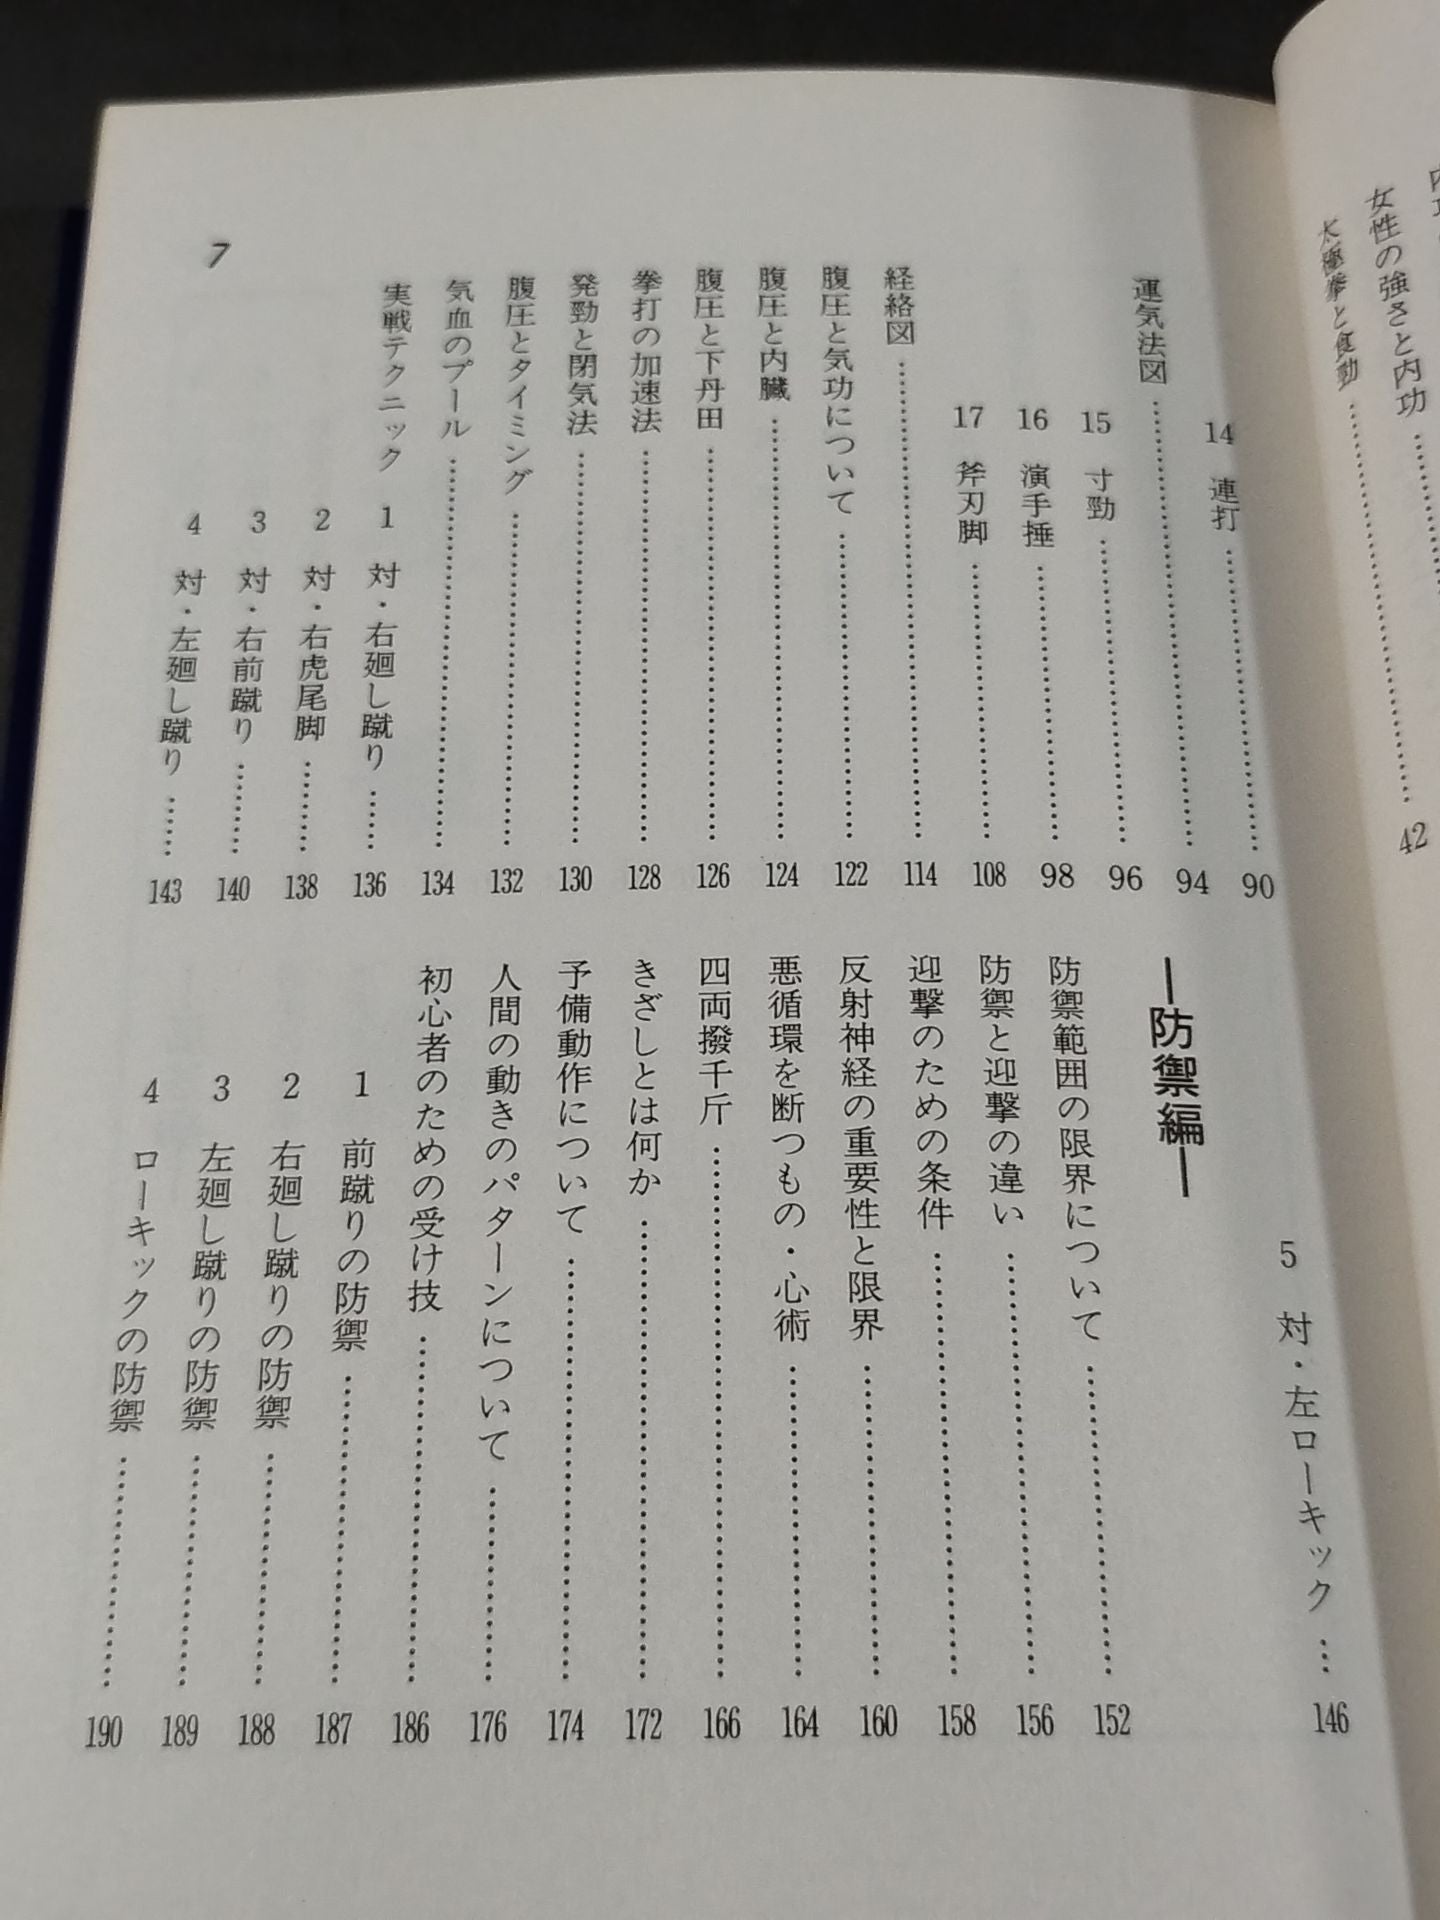 女性の強さと内功……42
太極拳と食効……
14 連打……90
運気法図……94
15 寸勁……96
16 演手捶……98
17 斧刃脚……108
経絡図……114
腹圧と気功について……122
腹圧と内臓……124
腹圧と下丹田……126
拳打の加速法……128
発勁と閉気法……130
腹圧とタイミング……132
気血のプール……134
実戦テクニック 1 対・右廻し蹴り……136
2 対・右虎尾脚……138
3 対・右前蹴り……140
4 対・左廻し蹴り……143
5 対・左ローキック…146
―防禦編―
防禦範囲の限界について……152
防禦と迎撃の違い……156
迎撃のための条件……158
反射神経の重要性と限界……160
悪循環を断つもの・心術……164
四両撥千斤……166
きざしとは何か……172
予備動作について……174
人間の動きのパターンについて……176
初心者のための受け技……186
1 前蹴りの防禦……187
2 右廻し蹴りの防禦……188
3 左廻し蹴りの防禦……189
4 ローキックの防禦……190
7